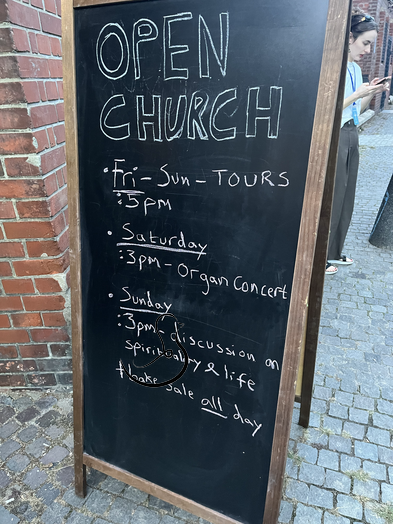 OPEN
CHURCH
• Fri - Sun - TOURS
:5pm
• Saturday
:3pm - Organ Concert
• Sunday
:3pm discussion on
spirituality & life
+ bake sale all day